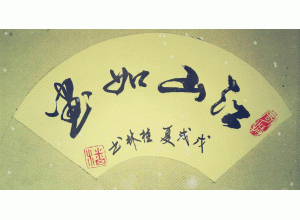 江山如画
戊戌夏桂林书